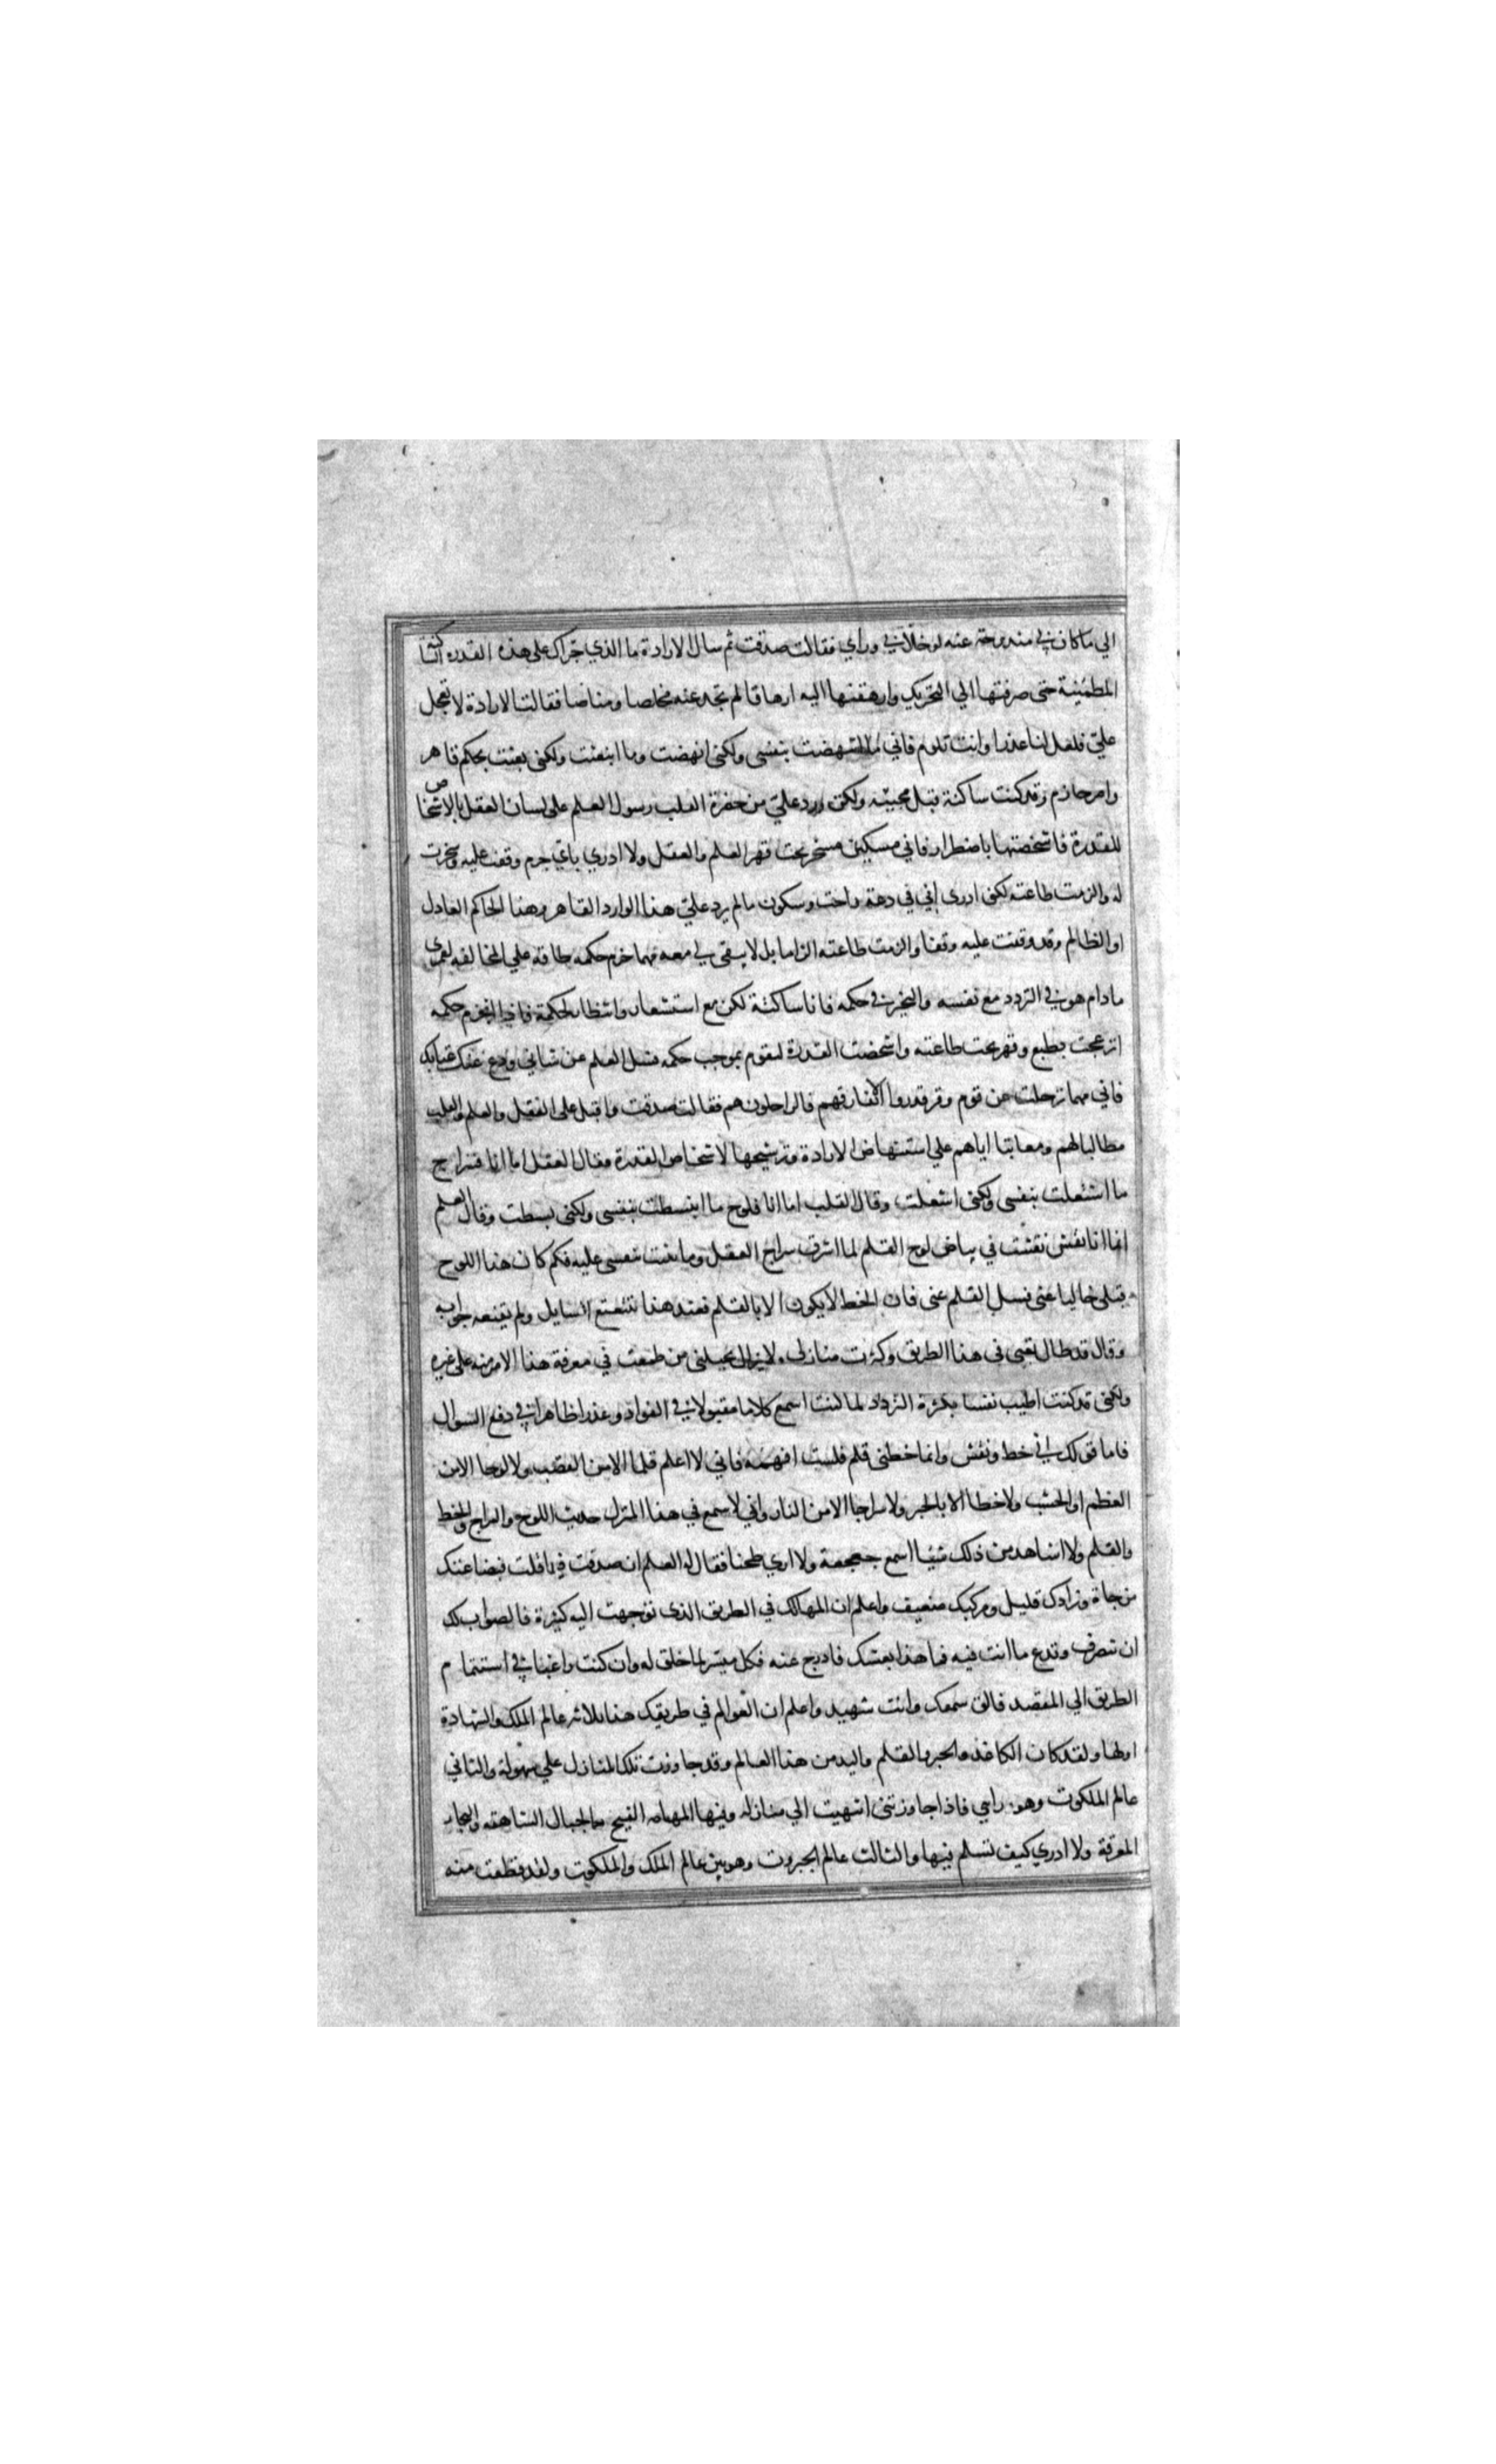 الي ما كان لي مندوحة عنه لو خلاني ورأي فقالت صدقت ثم سال الارادة ما الذي جراك على هذه القدرة الساكنة
المطمئنة حتى صرفتها الي التحريك وارهقتها اليه ارهاقا لم تجد عنه مخلصا ومناصا فقالت الارادة لا تعجل
علي فلعل لنا عذرا وانت تلوم فاني ما انتهضت بنفسي ولكني انهضت وما انبعثت ولكني بعثت بحكم قاهر
وامر جازم وقد كنت ساكنة قبل مجيئه ولكن ورد علي من حضرة القلب رسول العلم على لسان العقل بالاشخاص
للقدرة فاشخصتها باضطرار فاني مسكين مسخر تحت قهر العلم والعقل ولا ادري باي جرم وقفت عليه وسخرت
له والزمت طاعته لكني ادري اني في دعة وراحة وسكون ما لم يرد علي هذا الوارد القاهر وهذا الحاكم العادل
او الظالم وقد وقفت عليه وقفا والزمت طاعته الزاما بل لا يبقى لي معه مهما جزم حكمه طاقة علي المخالفه لعمري
ما دام هو في التردد مع نفسه والتحير في حكمه فانا ساكنة لكن مع استشعار وانتظار لحكمة فاذا انجزم حكمه
انزعجت بطبع وقهر تحت طاعته واشخصت القدرة لتقوم بموجب حكمه فسل العلم عن شاني ودع عنك عتابك
فاني مهما ترحلت عن قوم وقد قدروا الا تفارقهم فالراحلون هم فقالت صدقت واقبل على العقل والعلم والقلب
مطالبا لهم ومعاتبا اياهم علي استنهاض الارادة وترشيحها لاشخاص القدرة فقال العقل اما انا فسراج
ما اشتعلت بنفسي ولكني اشعلت وقال القلب اما انا فلوح ما انبسطت بنفسي ولكني بسطت وقال العلم
انما انا نقش نقشت في بياض لوح القلم لما اشرق سراج العقل وما نقشت بنفسي عليه فكم كان هذا اللوح
قبلي خاليا عني فسل القلم عني فان الخط لا يكون الا بالقلم فعند هذا تتعتع السايل ولم يقنعه جوابه
وقال قد طال تعبي في هذا الطريق وكثرت منازلي ولا يزال يحيلني من طمعت في معرفة هذا الامر منه على غيره
ولكني قد كنت اطيب نفسا بكثرة التردد لما كنت اسمع كلاما مقبولا في الفواد وعذرا ظاهرا في دفع السوال
فاما قولك اني خط ونقش وانما خطني قلم فلست افهمه فاني لا اعلم قلما الا من القصب ولا لوحا الا من
العظم او الخشب ولا خطا الا بالحبر ولا سراجا الا من النار واني لاسمع في هذا المنزل حديث اللوح والسراج والخط
والقلم ولا اشاهد من ذلك شيئا اسمع جعجعة ولا اري طحنا فقال له العلم ان صدقت فيما قلت فبضاعتك
مزجاة وزادك قليل ومركبك ضعيف واعلم ان المهالك في الطريق الذي توجهت اليه كثيرة فالصواب لك
ان تنصرف وتدع ما انت فيه فما هذا بعشك فادرج عنه فكل ميسر لما خلق له وان كنت راغبا في استتمام
الطريق الي المقصد فالق سمعك وانت شهيد واعلم ان العوالم في طريقك هذا ثلاثة عالم الملك والشهادة
اولها ولقد كان الكاغد والحبر والقلم واليد من هذا العالم وقد جاوزت تلك المنازل علي سهولة والثاني
عالم الملكوت وهو ورامي فاذا جاوزتني انتهيت الي منازله وفيها المهامه الفيح والجبال الشاهقه والبحار
المغرقة ولا ادري كيف تسلم فيها والثالث عالم الجبروت وهو بين عالم الملك والملكوت ولقد قطعت منه